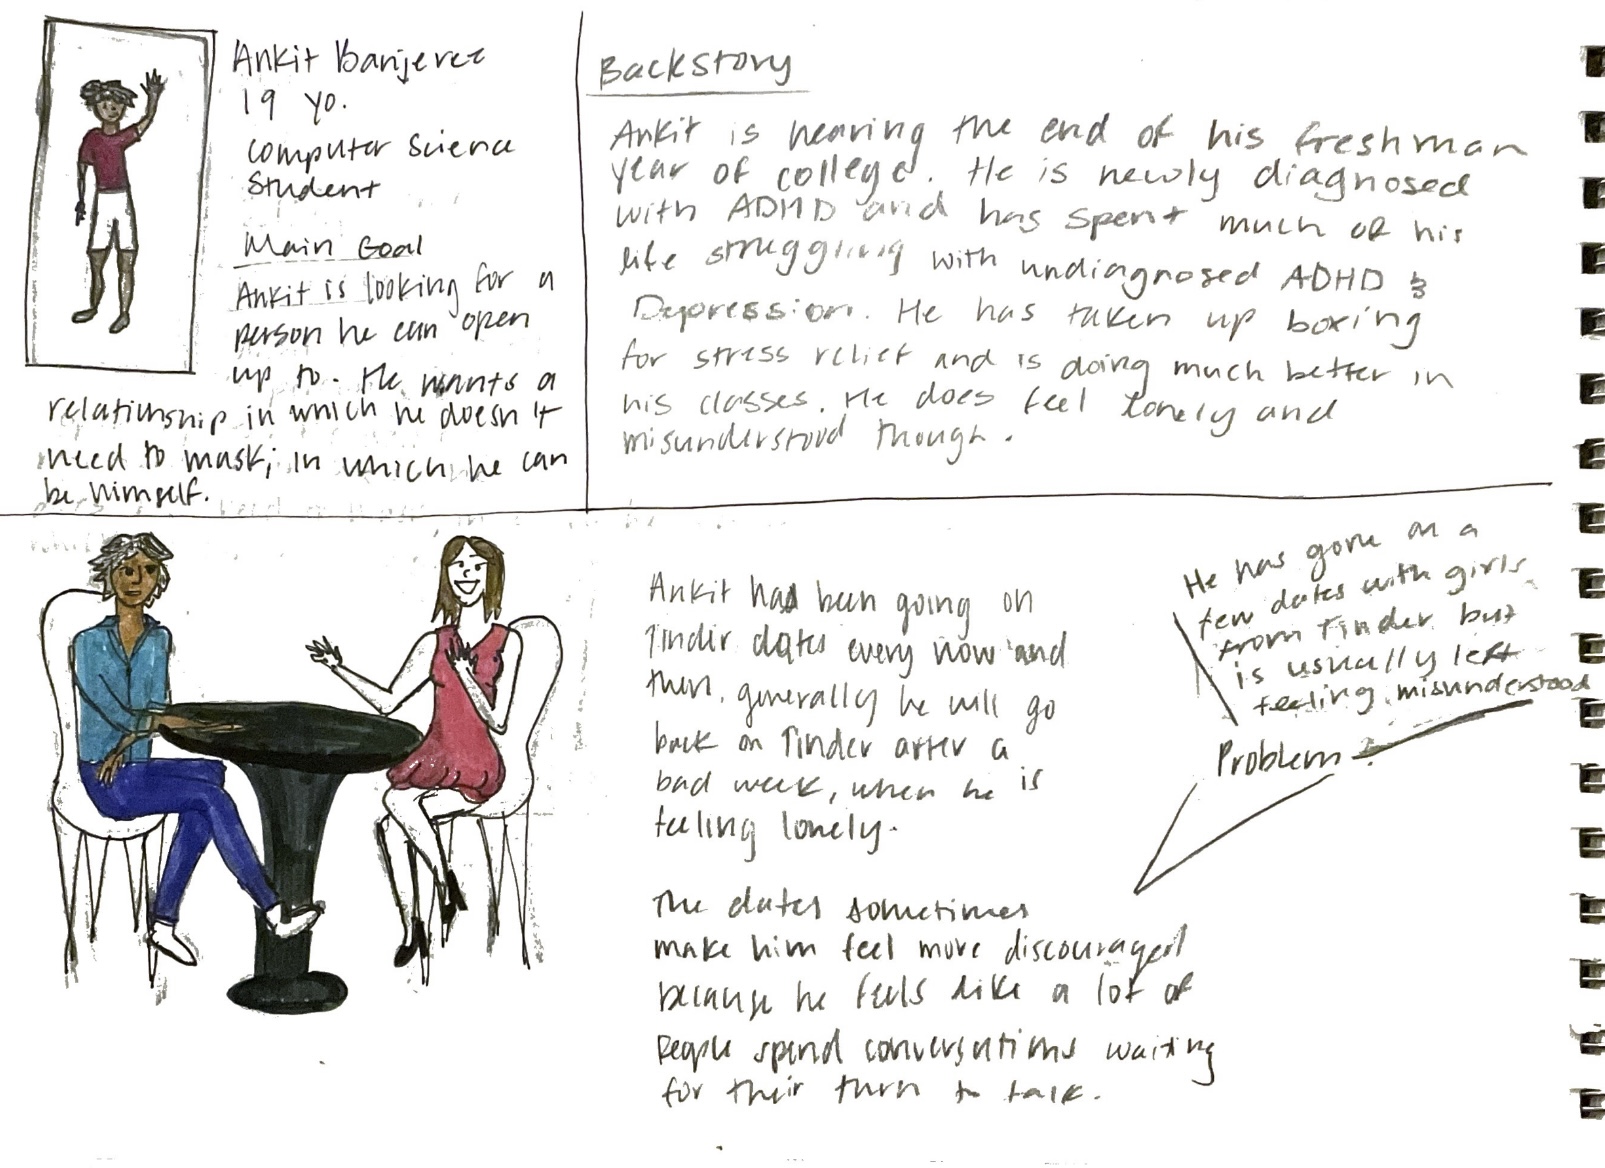 Ankit Banjeree
19 yo.
Computer Science
Student
Main Goal
Ankit is looking for a
person he can open
up to. He wants a
relationship in which he doesn't
need to mask; in which he can
be himself.
Backstory
Ankit is nearing the end of his freshman
year of college. He is newly diagnosed
with ADHD and has spent much of his
life struggling with undiagnosed ADHD &
Depression. He has taken up boxing
for stress relief and is doing much better in
his classes. He does feel lonely and
misunderstood though.
Ankit had been going on
Tinder dates every now and
then. generally he will go
back on Tinder after a
bad week, when he is
feeling lonely.
The dates sometimes
make him feel more discouraged
because he feels like a lot of
people spend conversations waiting
for their turn to talk.
He has gone on a
few dates with girls
from Tinder but
is usually left
feeling misunderstood
Problem